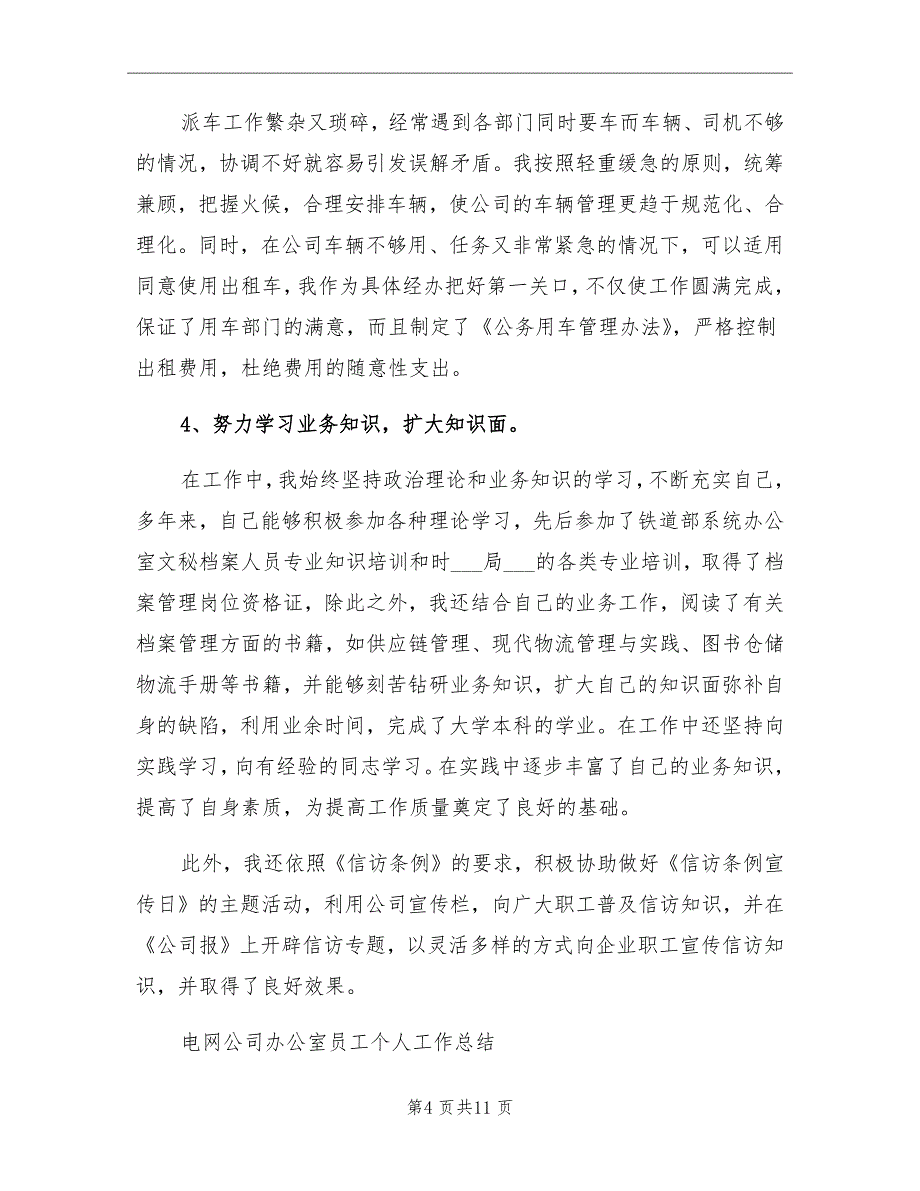 派车工作繁杂又琐碎，经常遇到各部门同时要车而车辆、司机不够
的情况，协调不好就容易引发误解矛盾。我按照轻重缓急的原则，统筹
兼顾，把握火候，合理安排车辆，使公司的车辆管理更趋于规范化、合
理化。同时，在公司车辆不够用、任务又非常紧急的情况下，可以适用
同意使用出租车，我作为具体经办把好第一关口，不仅使工作圆满完成，
保证了用车部门的满意，而且制定了《公务用车管理办法》，严格控制
出租费用，杜绝费用的随意性支出。
4、努力学习业务知识，扩大知识面。
在工作中，我始终坚持政治理论和业务知识的学习，不断充实自己，
多年来，自己能够积极参加各种理论学习，先后参加了铁道部系统办公
室文秘档案人员专业知识培训和时___局___的各类专业培训，取得了档
案管理岗位资格证，除此之外，我还结合自己的业务工作，阅读了有关
档案管理方面的书籍，如供应链管理、现代物流管理与实践、图书仓储
物流手册等书籍，并能够刻苦钻研业务知识，扩大自己的知识面弥补自
身的缺陷，利用业余时间，完成了大学本科的学业。在工作中还坚持向
实践学习，向有经验的同志学习。在实践中逐步丰富了自己的业务知识，
提高了自身素质，为提高工作质量奠定了良好的基础。
此外，我还依照《信访条例》的要求，积极协助做好《信访条例宣
传日》的主题活动，利用公司宣传栏，向广大职工普及信访知识，并在
《公司报》上开辟信访专题，以灵活多样的方式向企业职工宣传信访知
识，并取得了良好效果。
电网公司办公室员工个人工作总结
第4 页共11 页